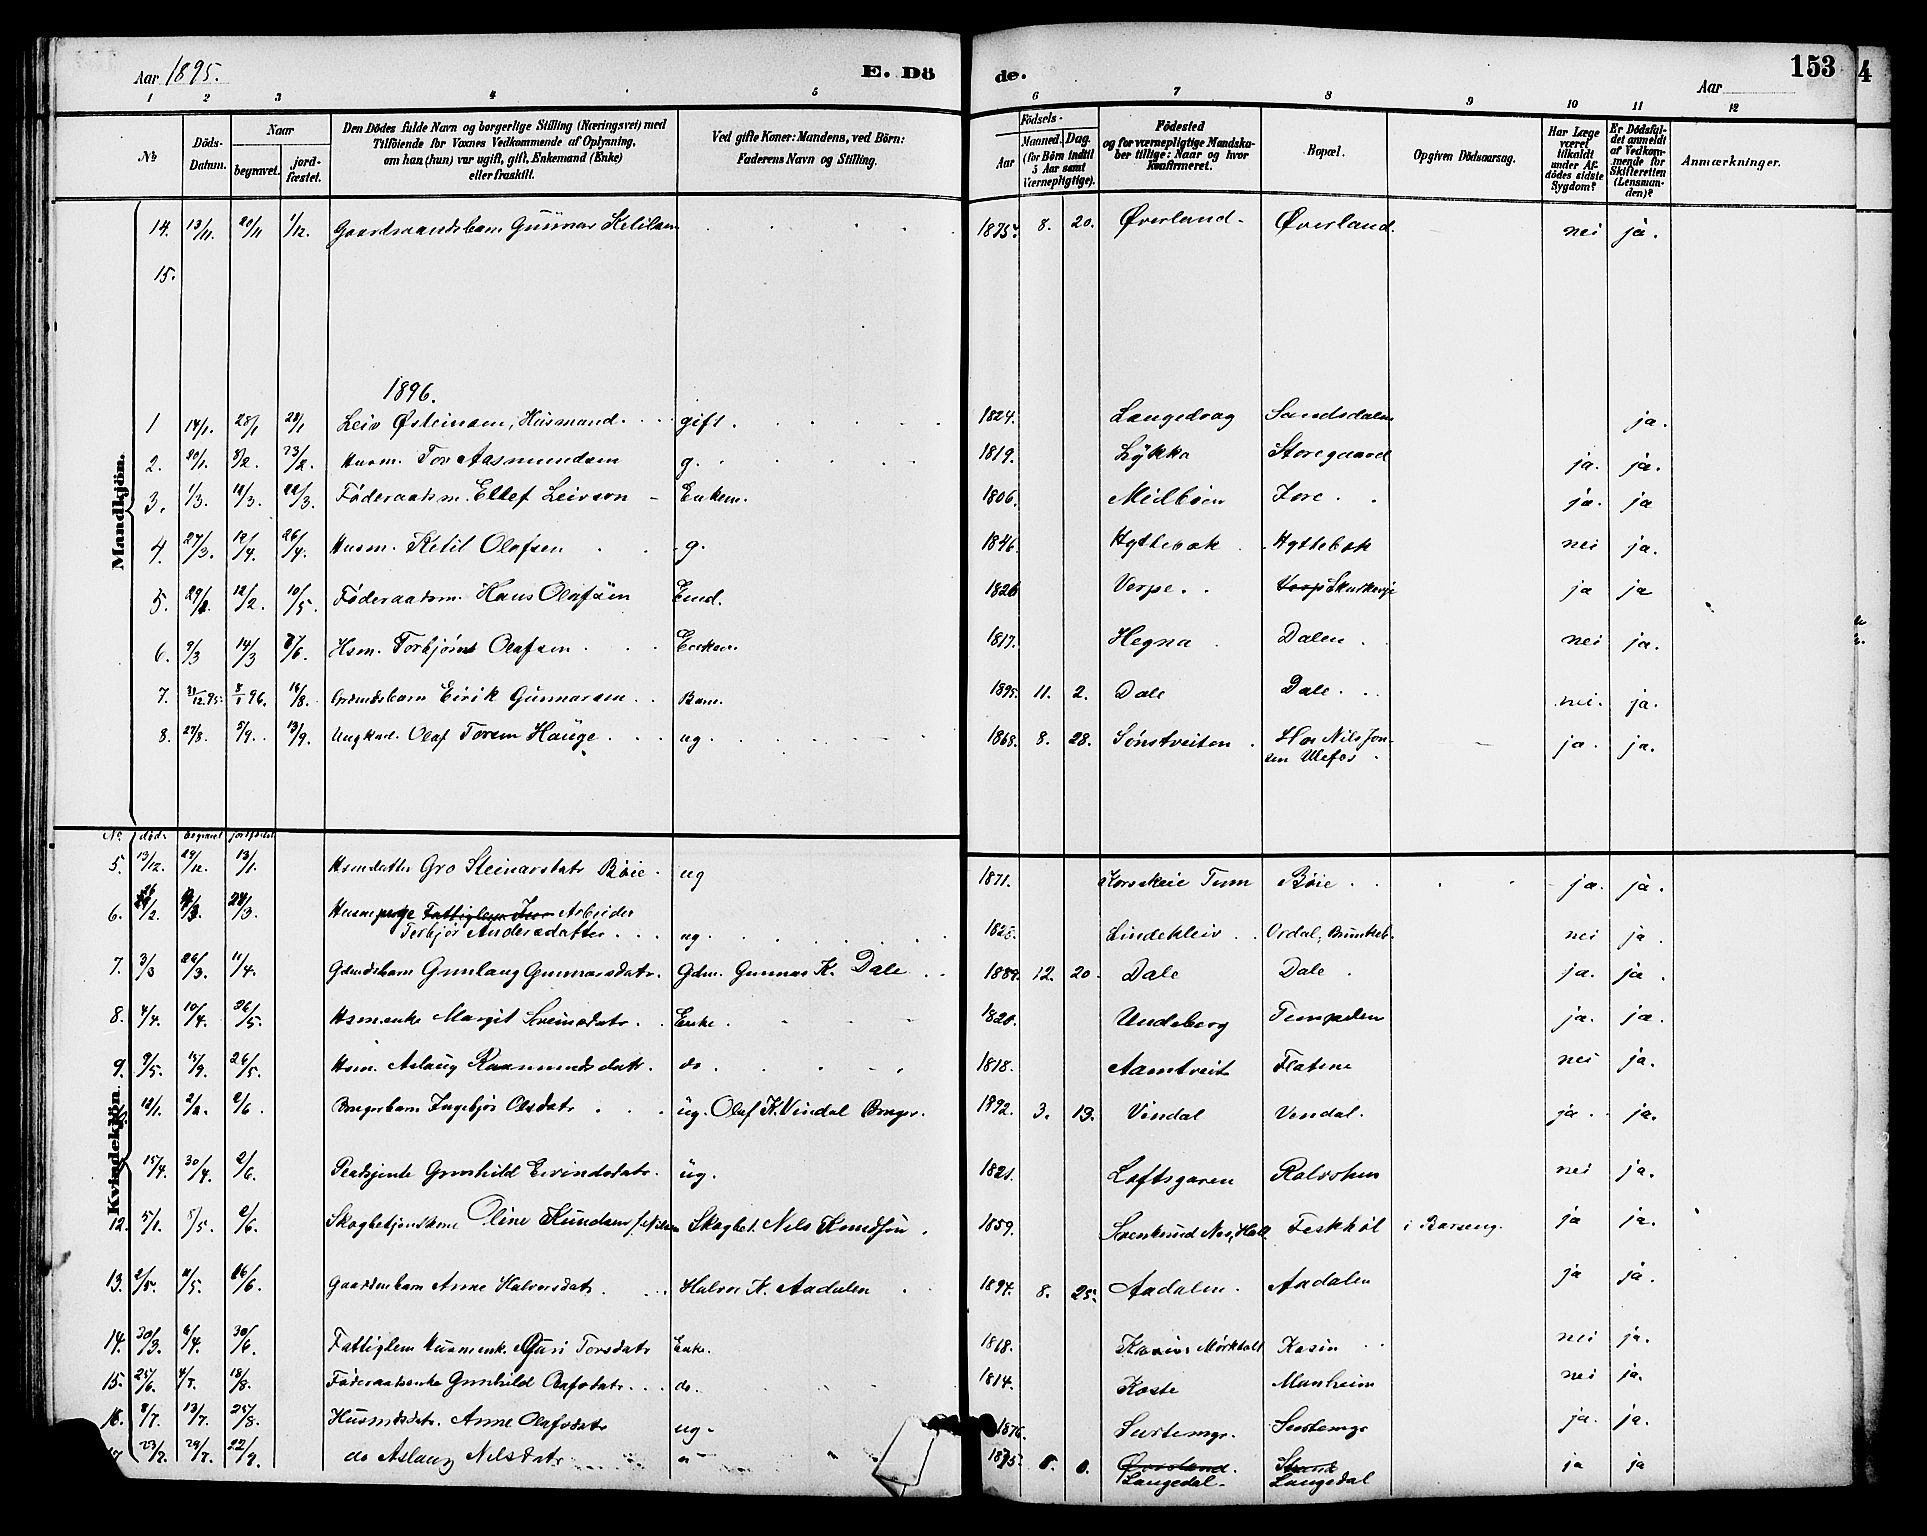 Aar 1895.
E. Dö
de.
Aar
153
4
1 2 3 4 5 6 7 8 9 10 11 12
№
Döds-Datum.
Naar
begravet.
jord-fæstet.
Den Dödes fulde Navn og borgerlige Stilling (Næringsvei) med
Tilföiende for Voxnes Vedkommende af Oplysning,
om han (hun) var ugift, gift, Enkemand (Enke)
eller fraskilt.
Ved gifte Koner: Mandens, ved Börn:
Faderens Navn og Stilling.
Födsels-
Aar
Maaned. Dag.
(for Börn indtil
5 Aar samt
Værnepligtige).
Födested
og for værnepligtige Mandska-
ber tillige: Naar og hvor
Konfirmeret.
Bopæl.
Opgiven Dödsaarsag.
Har Læge
været
tilkaldt
under Af-
dödes sidste
Sygdom?
Er Dödsfal-
det anmeldt
af Vedkom-
mende for
Skifteretten
(Lensman-
den)?
Anmærkninger.
Mandkjön.
14. 13/11. 20/11 1/12. Gaardmandsbarn Gunnar Ketilsen 1875. 8. 20. Øverland. Øverland. nei ja.
15.
1896.
1 14/1. 28/1 28/1 Leiv Østeinsen, Husmand. gift. 1824. Langedrag Sandsdalen ja.
2. 20/1. 8/2. 23/2. Husm. Tor Aasmundsen g. 1819. Lykkja Storegaard ja. ja.
3. 1/3. 12/3. 22/3. Föderaadsm. Ellef Leivson Enkem. 1806. Midbøen Fore ja. ja
4. 27/3. 12/4. 26/4. Husm. Ketil Olafsen g. 1846. Hyttebæk Hyttebæk nei ja.
5. 29/1. 12/2. 10/5. Föderaadsm. Hans Olafsen Emd. 1826 Verpe. Skarkerje ja ja
6. 9/3 14/3 7/6. Hsm. Torbjørn Olafsen Enkem. 1817. Hegna Dalen nei ja.
7. 31/12.95. 8/1 96. 16/8. Grdmdsbarn Eirik Gunnarsen Barn. 1895. 11. 2. Dale Dale nei. ja.
8. 27/8. 5/9. 13/9. Ungkarl. Olaf Torsen Hauge ug. 1868. 8. 28. Sønstveiten Hos Nils Jon-
sen Ulefos ja. ja.
Kvindekjön.
No. död. begravet jordfæstet
5. 13/12. 29/12. 13/1. Hsmdatter Gro Steinarsdatr Bøie. ug 1871. Korsskeie Tinn Bøie ja. ja.
6. 26/2. 28/3. Husmpige Arbeider
Torbjør Andersdatter ug. 1828. Lindekleiv Ordal, nei ja.
7. 3/3 26/3. 11/4. Gdmdsbarn Gunlaug Gunnarsdatr. Gdm. Gunnar K. Dale 1889. 12. 20. Dale Dale ja. ja.
8. 4/4. 10/4. 26/5. Hsmenke Margit Sveinsdatr. Enke. 1820. Undeberg Tempelen ja. ja.
9. 9/5. 26/5. Hsm. Aslaug Rasmundsdatr. do. 1818. Aamtveit Flatene nei ja.
12/1. 2/2. 2/6. Brugerbarn Ingebjør Olsdatr ug. Olaf K. Vindal Bruger. 1892. 3. 13. Vindal Vendal. ja. ja.
15/4. 30/4. 2/6. Gunhild Eivindsdatr. ug. 1821. Loftsgaren nei ja.
12. 5/1. 5/5. 2/6. Skogbetjentkone Oline Knudsen f. Nilsen Skogbet. Nils Knudsön. 1859. Svenkrud Nes, Hall. Feskhøl i Barseng. ja ja.
13. 2/5. 11/5. 16/6. Gaardmbarn Anne Halvorsdatr. Halvor K. Aadalen 1894. 8. 25. Aadalen. Aadalen ja ja.
14. 30/3. 6/4. 30/6. Fattiglem Husmenk. Guri Torsdatr Enke. 1818. Kasin Kasin nei ja.
15. 25/6. 4/7. 18/8. Föderaadsenke Gunhild Olafsdatr. do. 1814. Koste Manheim nei ja.
16. 8/7. 13/7. 25/8. Husmdsdatr. Anne Olafsdatr ug. 1876. Surtemgr. Surtemgr ja. ja.
17 23/7. 29/7. 22/9. do Aslaug Nilsdatr " 1895. 0. 0. Øverland. Langedal. Langedal ja ja